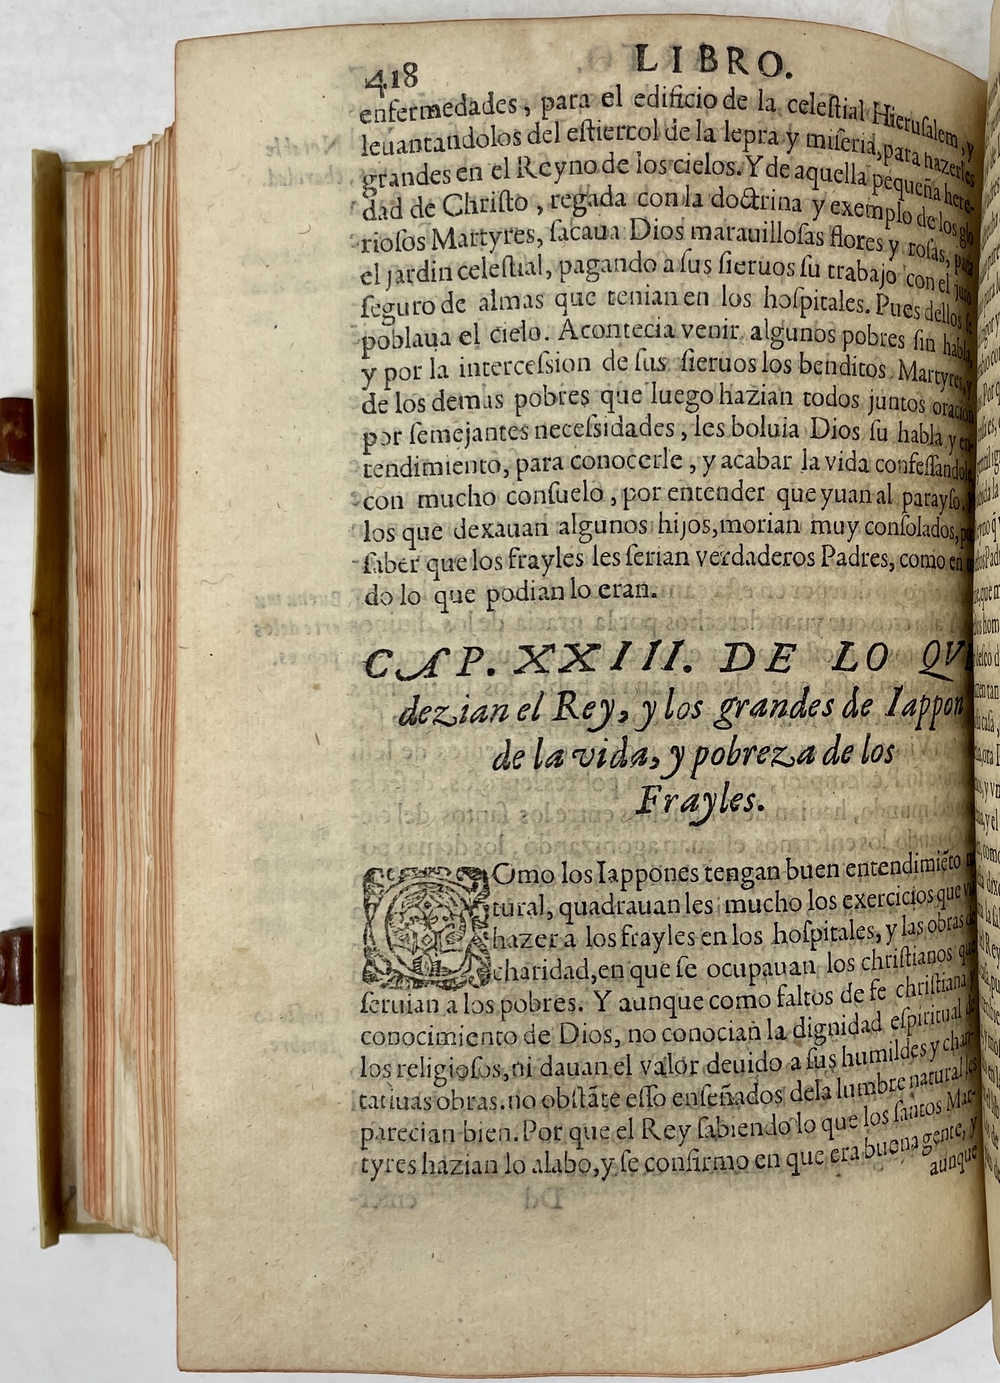 418
LIBRO.
enfermedades, para el edificio de la celeſtial Hieruſalem, y
leuantandolos del eſtiercol de la lepra y miſeria, para hazerles
grandes en el Reyno de los cielos. Y de aquella pequeña here-
dad de Chriſto, regada con la doctrina y exemplo de los glo
rioſos Martyres, ſacaua Dios marauilloſas flores y roſas, para
el jardin celeſtial, pagando a ſus ſieruos ſu trabajo con el juro
ſeguro de almas que tenian en los hoſpitales. Pues dellos ſe
poblaua el cielo. Acontecia venir algunos pobres ſin habla,
y por la interceſsion de ſus ſieruos los benditos Martyres, y
de los demas pobres que luego hazian todos juntos oracion
por ſemejantes neceſsidades, les boluia Dios ſu habla y en-
tendimiento, para conocerle, y acabar la vida confeſſandole
con mucho conſuelo, por entender que yuan al parayſo.
los que dexauan algunos hijos, morian muy conſolados,
ſaber que los frayles les ſerian verdaderos Padres, como en
do lo que podian lo eran.
CAP. XXIII. DE LO QVE
dezian el Rey, y los grandes de Iappon
de la vida, y pobreza de los
Frayles.
COmo los Iappones tengan buen entendimiẽto
tural, quadrauan les mucho los exercicios que
hazer a los frayles en los hoſpitales, y las obras
charidad, en que ſe ocupauan los chriſtianos que
ſeruian a los pobres. Y aunque como faltos de fe chriſtiana y
conocimiento de Dios, no conocian la dignidad eſpiritual de
los religioſos, ni dauan el valor deuido a ſus humildes y chari-
tatiuas obras. no obſtãte eſſo enſeñados dela lumbre natural les
parecian bien. Por que el Rey ſabiendo lo que los ſantos Mar-
tyres hazian lo alabo, y ſe confirmo en que era buena gente, y
aunque